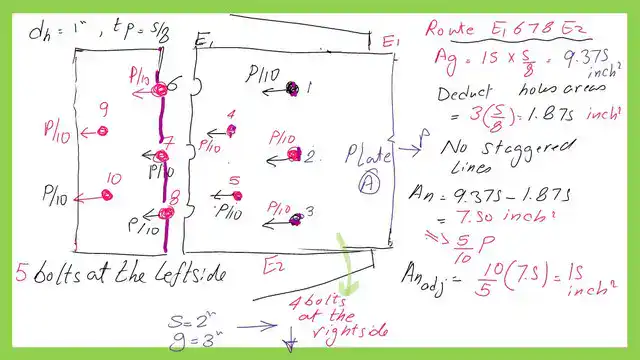 dh = 1", tp = 5/8
E1
E1
P/10
6
P/10
1
9
P/10
4
P/10
7
P/10
P/10
2
Plate
A
P
10
P/10
8
P/10
5
P/10
P/10
3
E2
5 bolts at the leftside
4 bolts
at the
rightside
s = 2"
g = 3"
Route E1 678 E2
Ag = 15 × 5/8 = 9.375 inch²
Deduct holes areas
= 3(5/8) = 1.875 inch²
No staggered
Lines
An = 9.375 - 1.875
= 7.50 inch²
=> 5/10 P
An adj = 10/5 (7.5) = 15 inch²